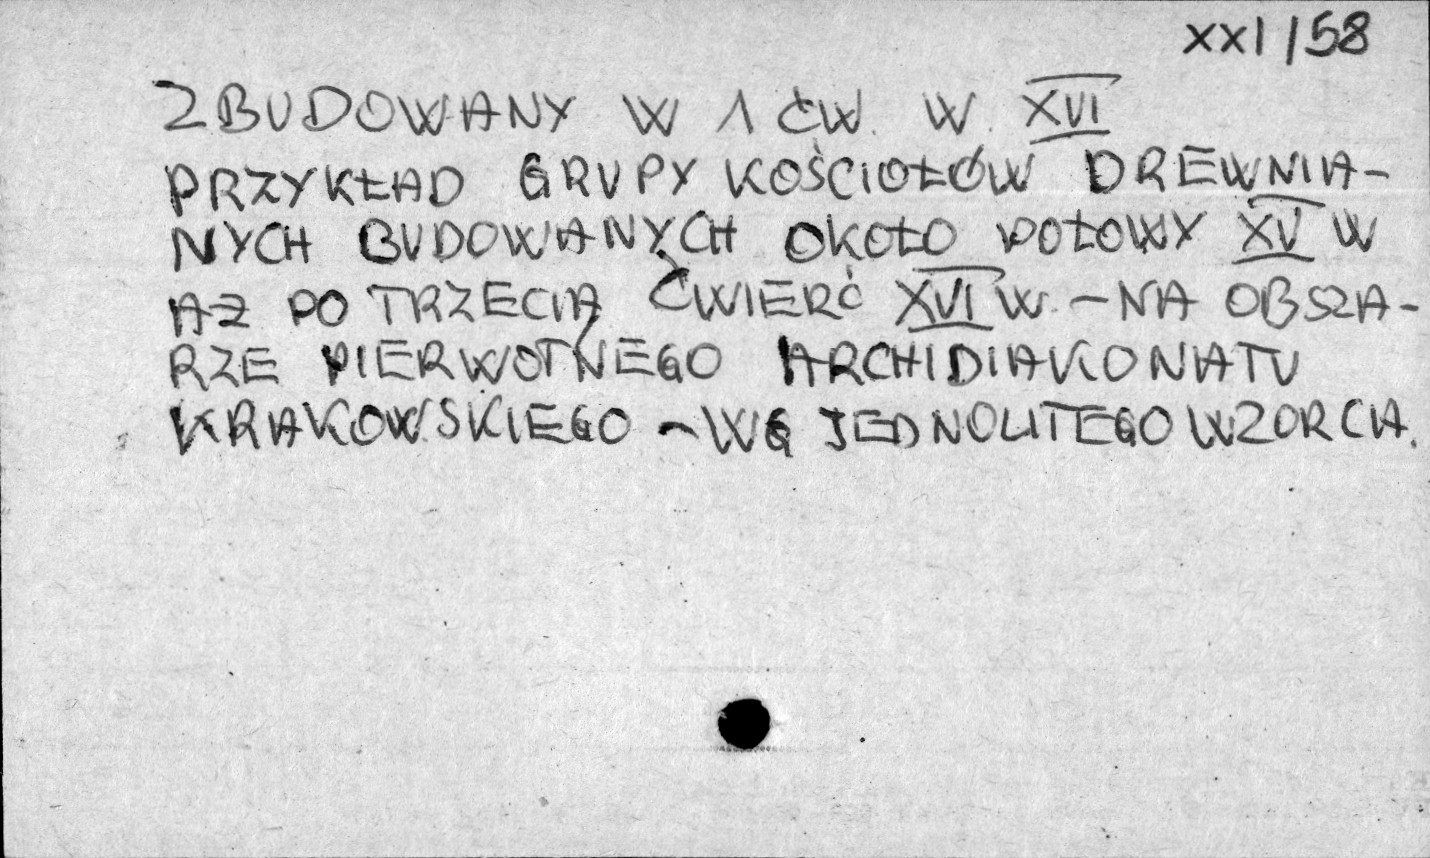 XXI/58
ZBUDOWANY W 1 ĆW. W. XVI
PRZYKŁAD GRUPY KOŚCIOŁÓW DREWNIA-
NYCH BUDOWANYCH OKOŁO POŁOWY XV W
AŻ PO TRZECIĄ ĆWIERĆ XVI W. - NA OBSZA-
RZE PIERWOTNEGO ARCHIDIAKONATU
KRAKOWSKIEGO - WG JEDNOLITEGO WZORCA.